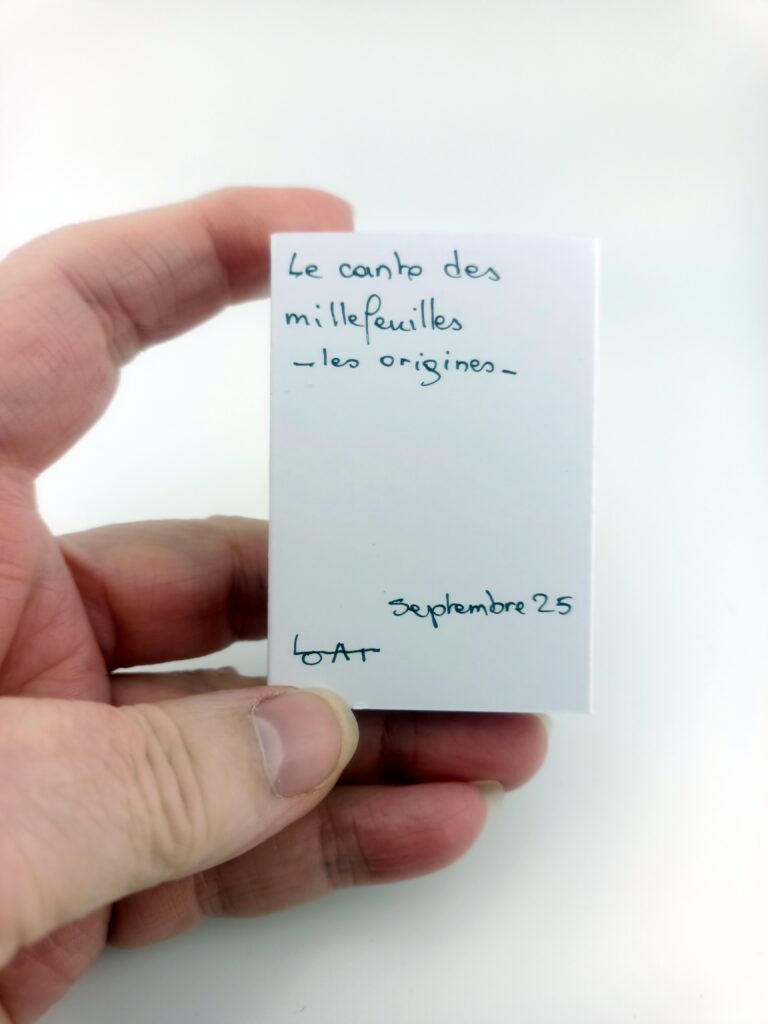 Le canto des
millefeuilles
-les origines-
Septembre 25
LOAT